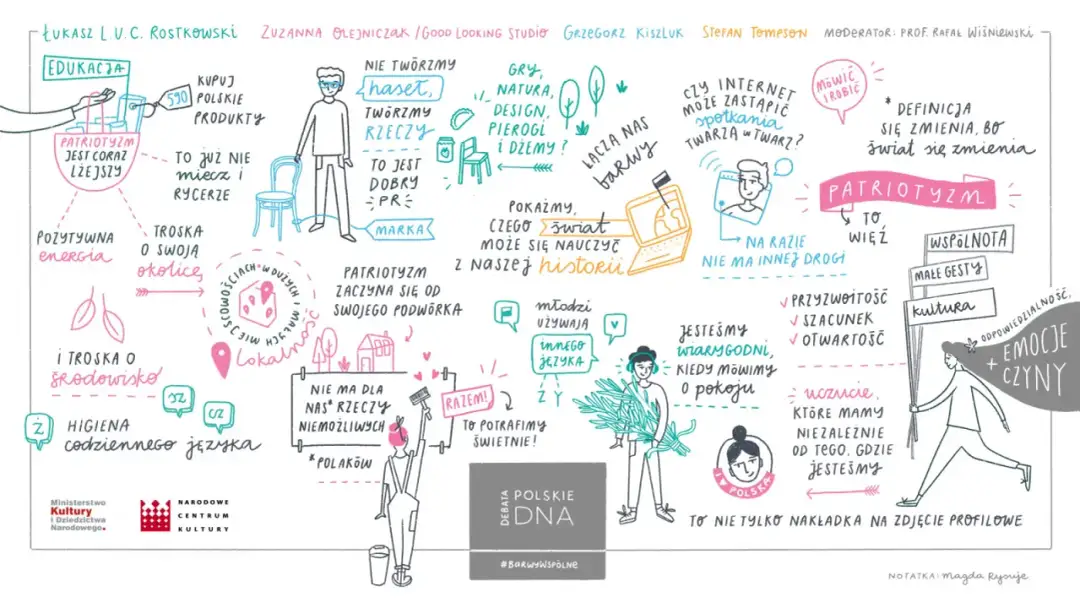 ŁUKASZ L.U.C. ROSTKOWSKI
ZUZANNA OLEJNICZAK / GOOD LOOKING STUDIO
GRZEGORZ KISZLUK
STEFAN TOMPSON
MODERATOR: PROF. RAFAŁ WIŚNIEWSKI
EDUKACJA
590
KUPUJ
POLSKIE
PRODUKTY
PATRIOTYZM
JEST CORAZ
LŻEJSZY
TO JUŻ NIE
MIECZ I
RYCERZE
POZYTYWNA
energia
TROSKA
O SWOJĄ
okolicę
I TROSKA O
środowisko
Ż
SZ
CZ
HIGIENA
codziennego języka
NIE TWÓRZMY
haseł,
TWÓRZMY
RZECZY
TO JEST
DOBRY
PR
MARKA
GRY,
NATURA,
DESIGN,
PIEROGI
I DŻEMY?
ŁĄCZĄ NAS
barwy
POKAŻMY,
CZEGO świat
MOŻE SIĘ NAUCZYĆ
Z NASZEJ historii
CZY INTERNET
MOŻE ZASTĄPIĆ
spotkania
TWARZĄ W TWARZ?
NA RAZIE
NIE MA INNEJ DROGI
MÓWIĆ
I ROBIĆ
* DEFINICJA
SIĘ ZMIENIA, BO
świat się zmienia
PATRIOTYZM
TO
WIĘŹ
WSPÓLNOTA
MAŁE GESTY
kultura
ODPOWIEDZIALNOŚĆ,
EMOCJE
+ CZYNY
W DUŻYCH I MAŁYCH MIEJSCOWOŚCIACH
Lokalność
PATRIOTYZM
ZACZYNA SIĘ OD
SWOJEGO PODWÓRKA
NIE MA DLA
NAS* RZECZY
NIEMOŻLIWYCH
*POLAKÓW
RAZEM!
TO POTRAFIMY
ŚWIETNIE!
młodzi
UŻYWAJĄ
innego
języka
Z Y
JESTEŚMY
wiarygodni,
KIEDY MÓWIMY
O pokoju
PRZYZWOITOŚĆ
SZACUNEK
OTWARTOŚĆ
uczucie,
KTÓRE MAMY
NIEZALEŻNIE
OD TEGO, GDZIE
JESTEŚMY
I ♥ POLSKA
TO NIE TYLKO NAKŁADKA NA ZDJĘCIE PROFILOWE
Ministerstwo
Kultury
i Dziedzictwa
Narodowego.
NARODOWE
CENTRUM
KULTURY
DEBATA
POLSKIE
DNA
#BARWYWSPÓLNE
NOTATKA: Magda Rysuje